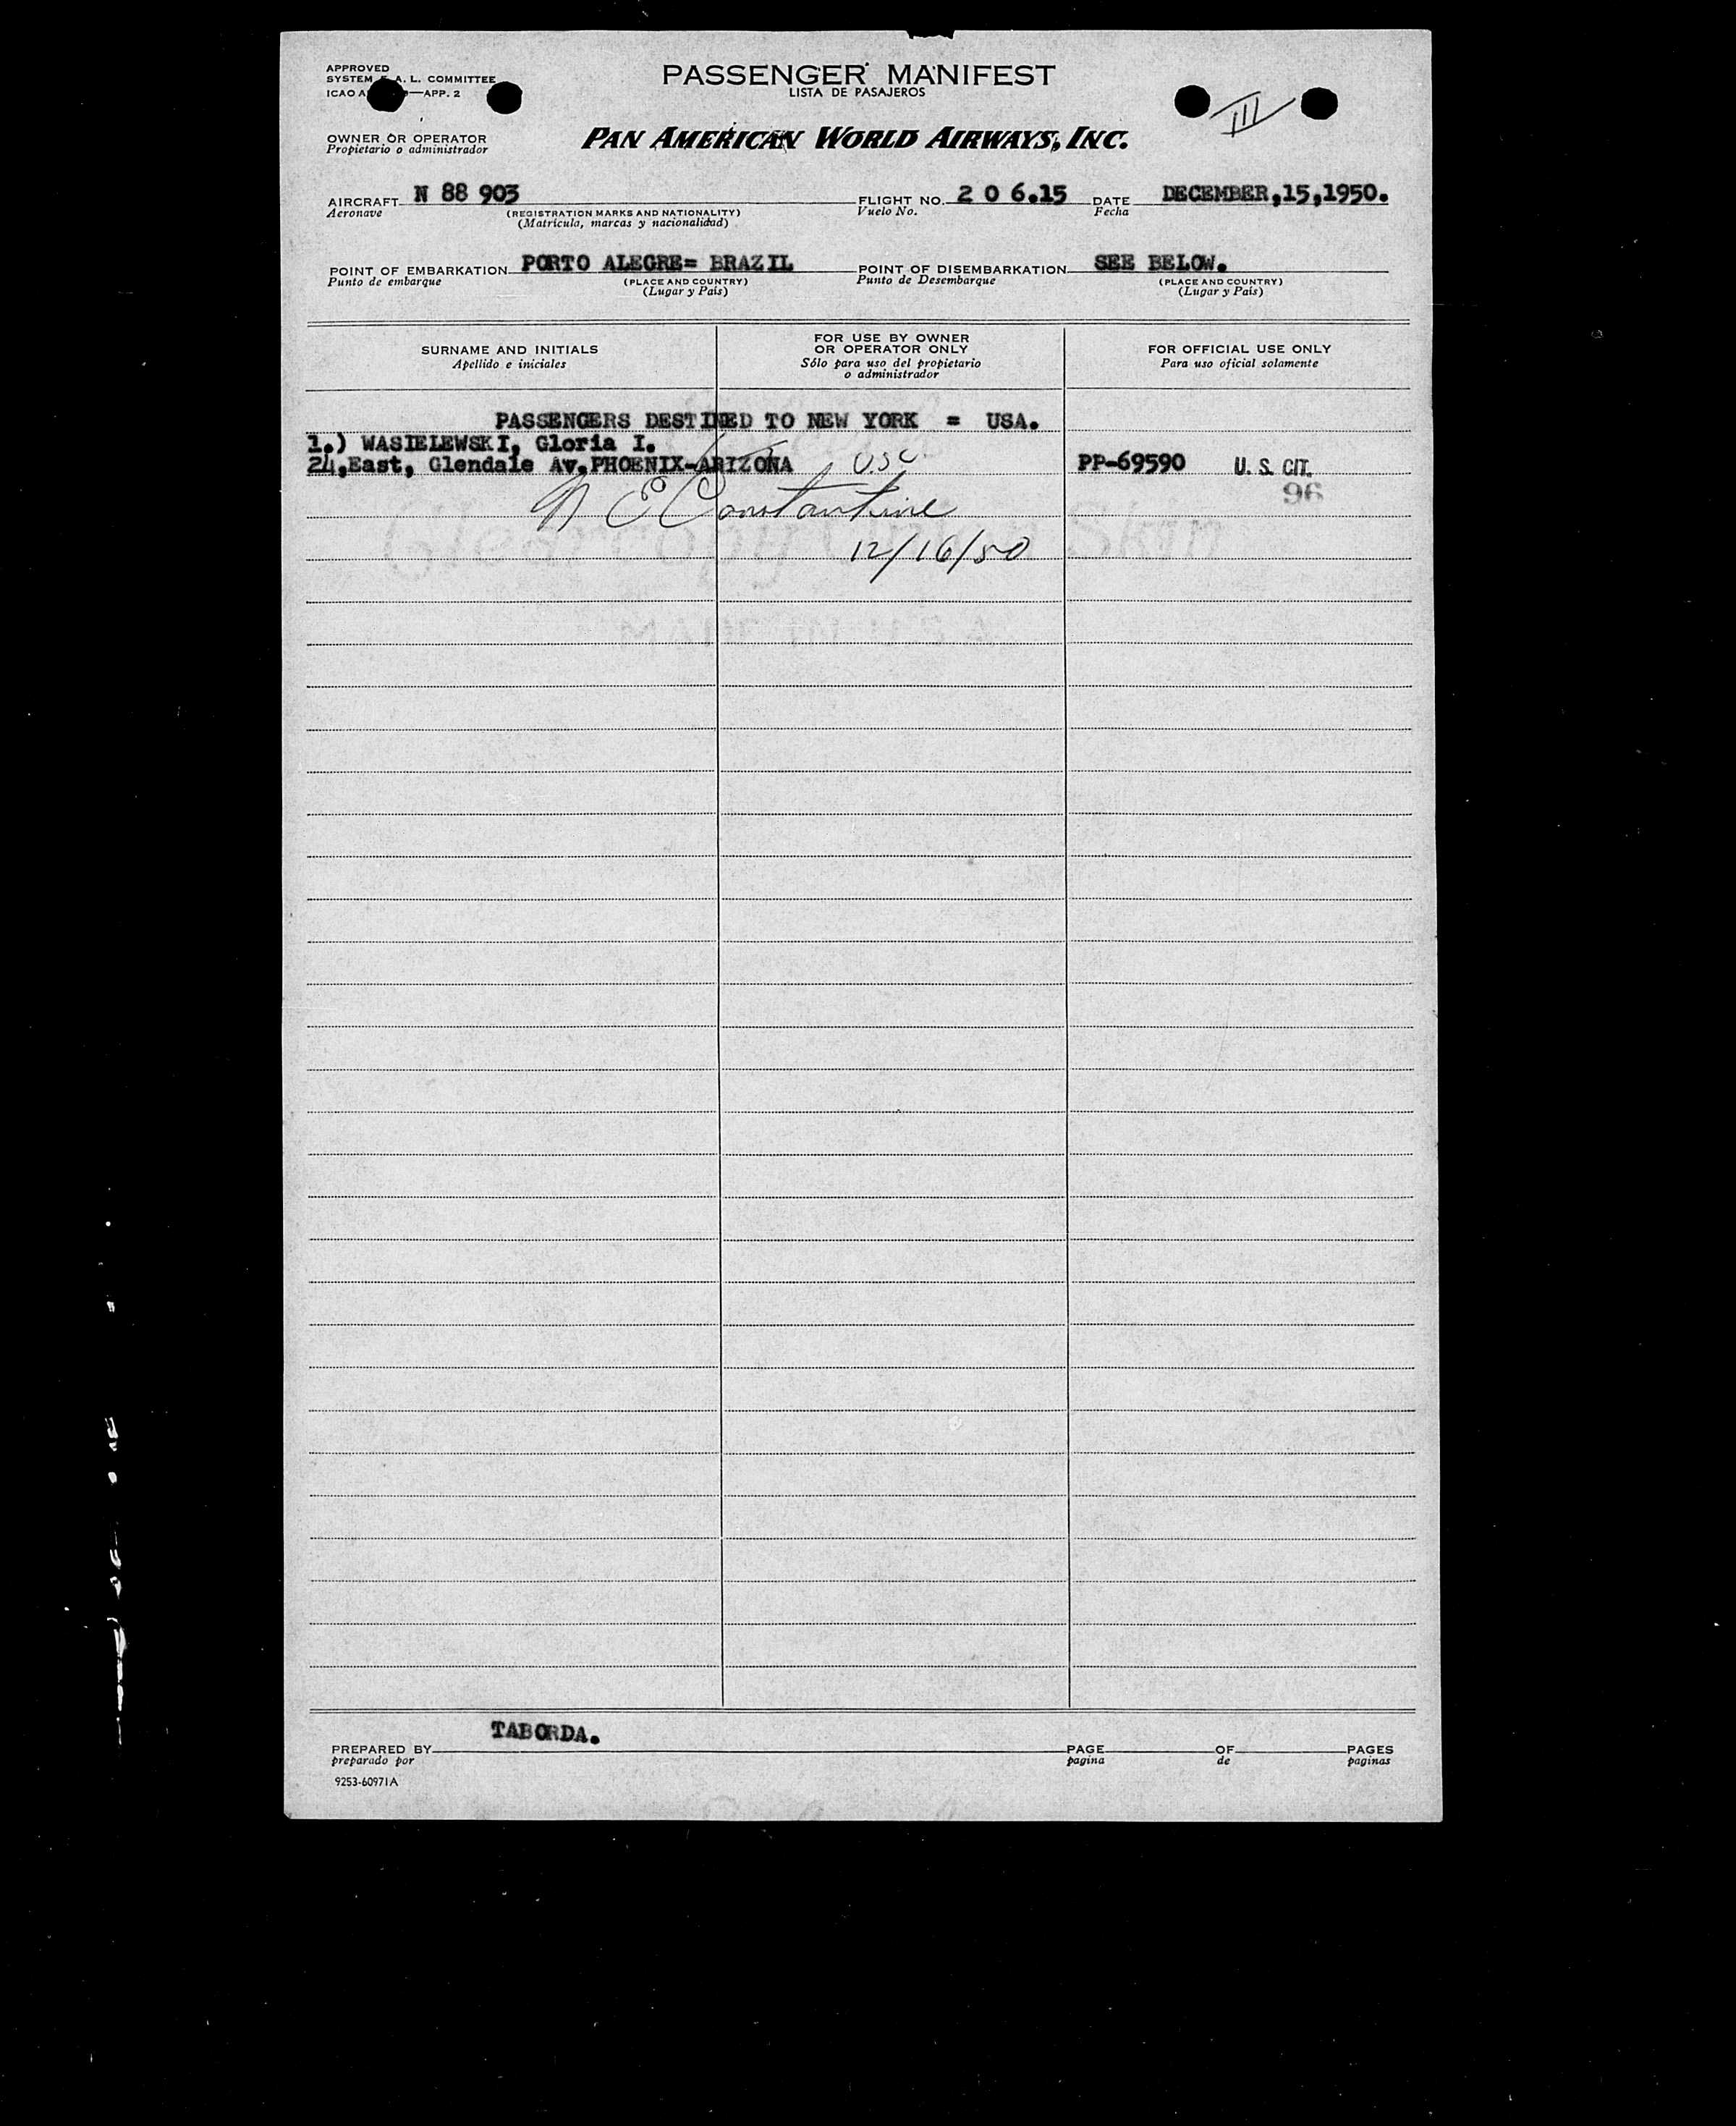 APPROVED
SYSTEM F. A. L. COMMITTEE
ICAO A —APP. 2
PASSENGER MANIFEST
LISTA DE PASAJEROS
III
OWNER OR OPERATOR
Propietario o administrador
PAN AMERICAN WORLD AIRWAYS, INC.
AIRCRAFT N 88 903 FLIGHT NO. 2 0 6.15 DATE DECEMBER,15,1950.
Aeronave (REGISTRATION MARKS AND NATIONALITY) Vuelo No. Fecha
(Matrícula, marcas y nacionalidad)
POINT OF EMBARKATION PORTO ALEGRE= BRAZIL POINT OF DISEMBARKATION SEE BELOW.
Punto de embarque (PLACE AND COUNTRY) Punto de Desembarque (PLACE AND COUNTRY)
(Lugar y País) (Lugar y País)
SURNAME AND INITIALS
Apellido e iniciales
FOR USE BY OWNER
OR OPERATOR ONLY
Sólo para uso del propietario
o administrador
FOR OFFICIAL USE ONLY
Para uso oficial solamente
PASSENGERS DESTINED TO NEW YORK = USA.
1.) WASIELEWSKI, Gloria I.
24,East, Glendale Av.PHOENIX-ARIZONA USC PP-69590 U. S. CIT.
96
N E Constantine
12/16/50
TABORDA.
PREPARED BY PAGE OF PAGES
preparado por pagina de paginas
9253-60971A